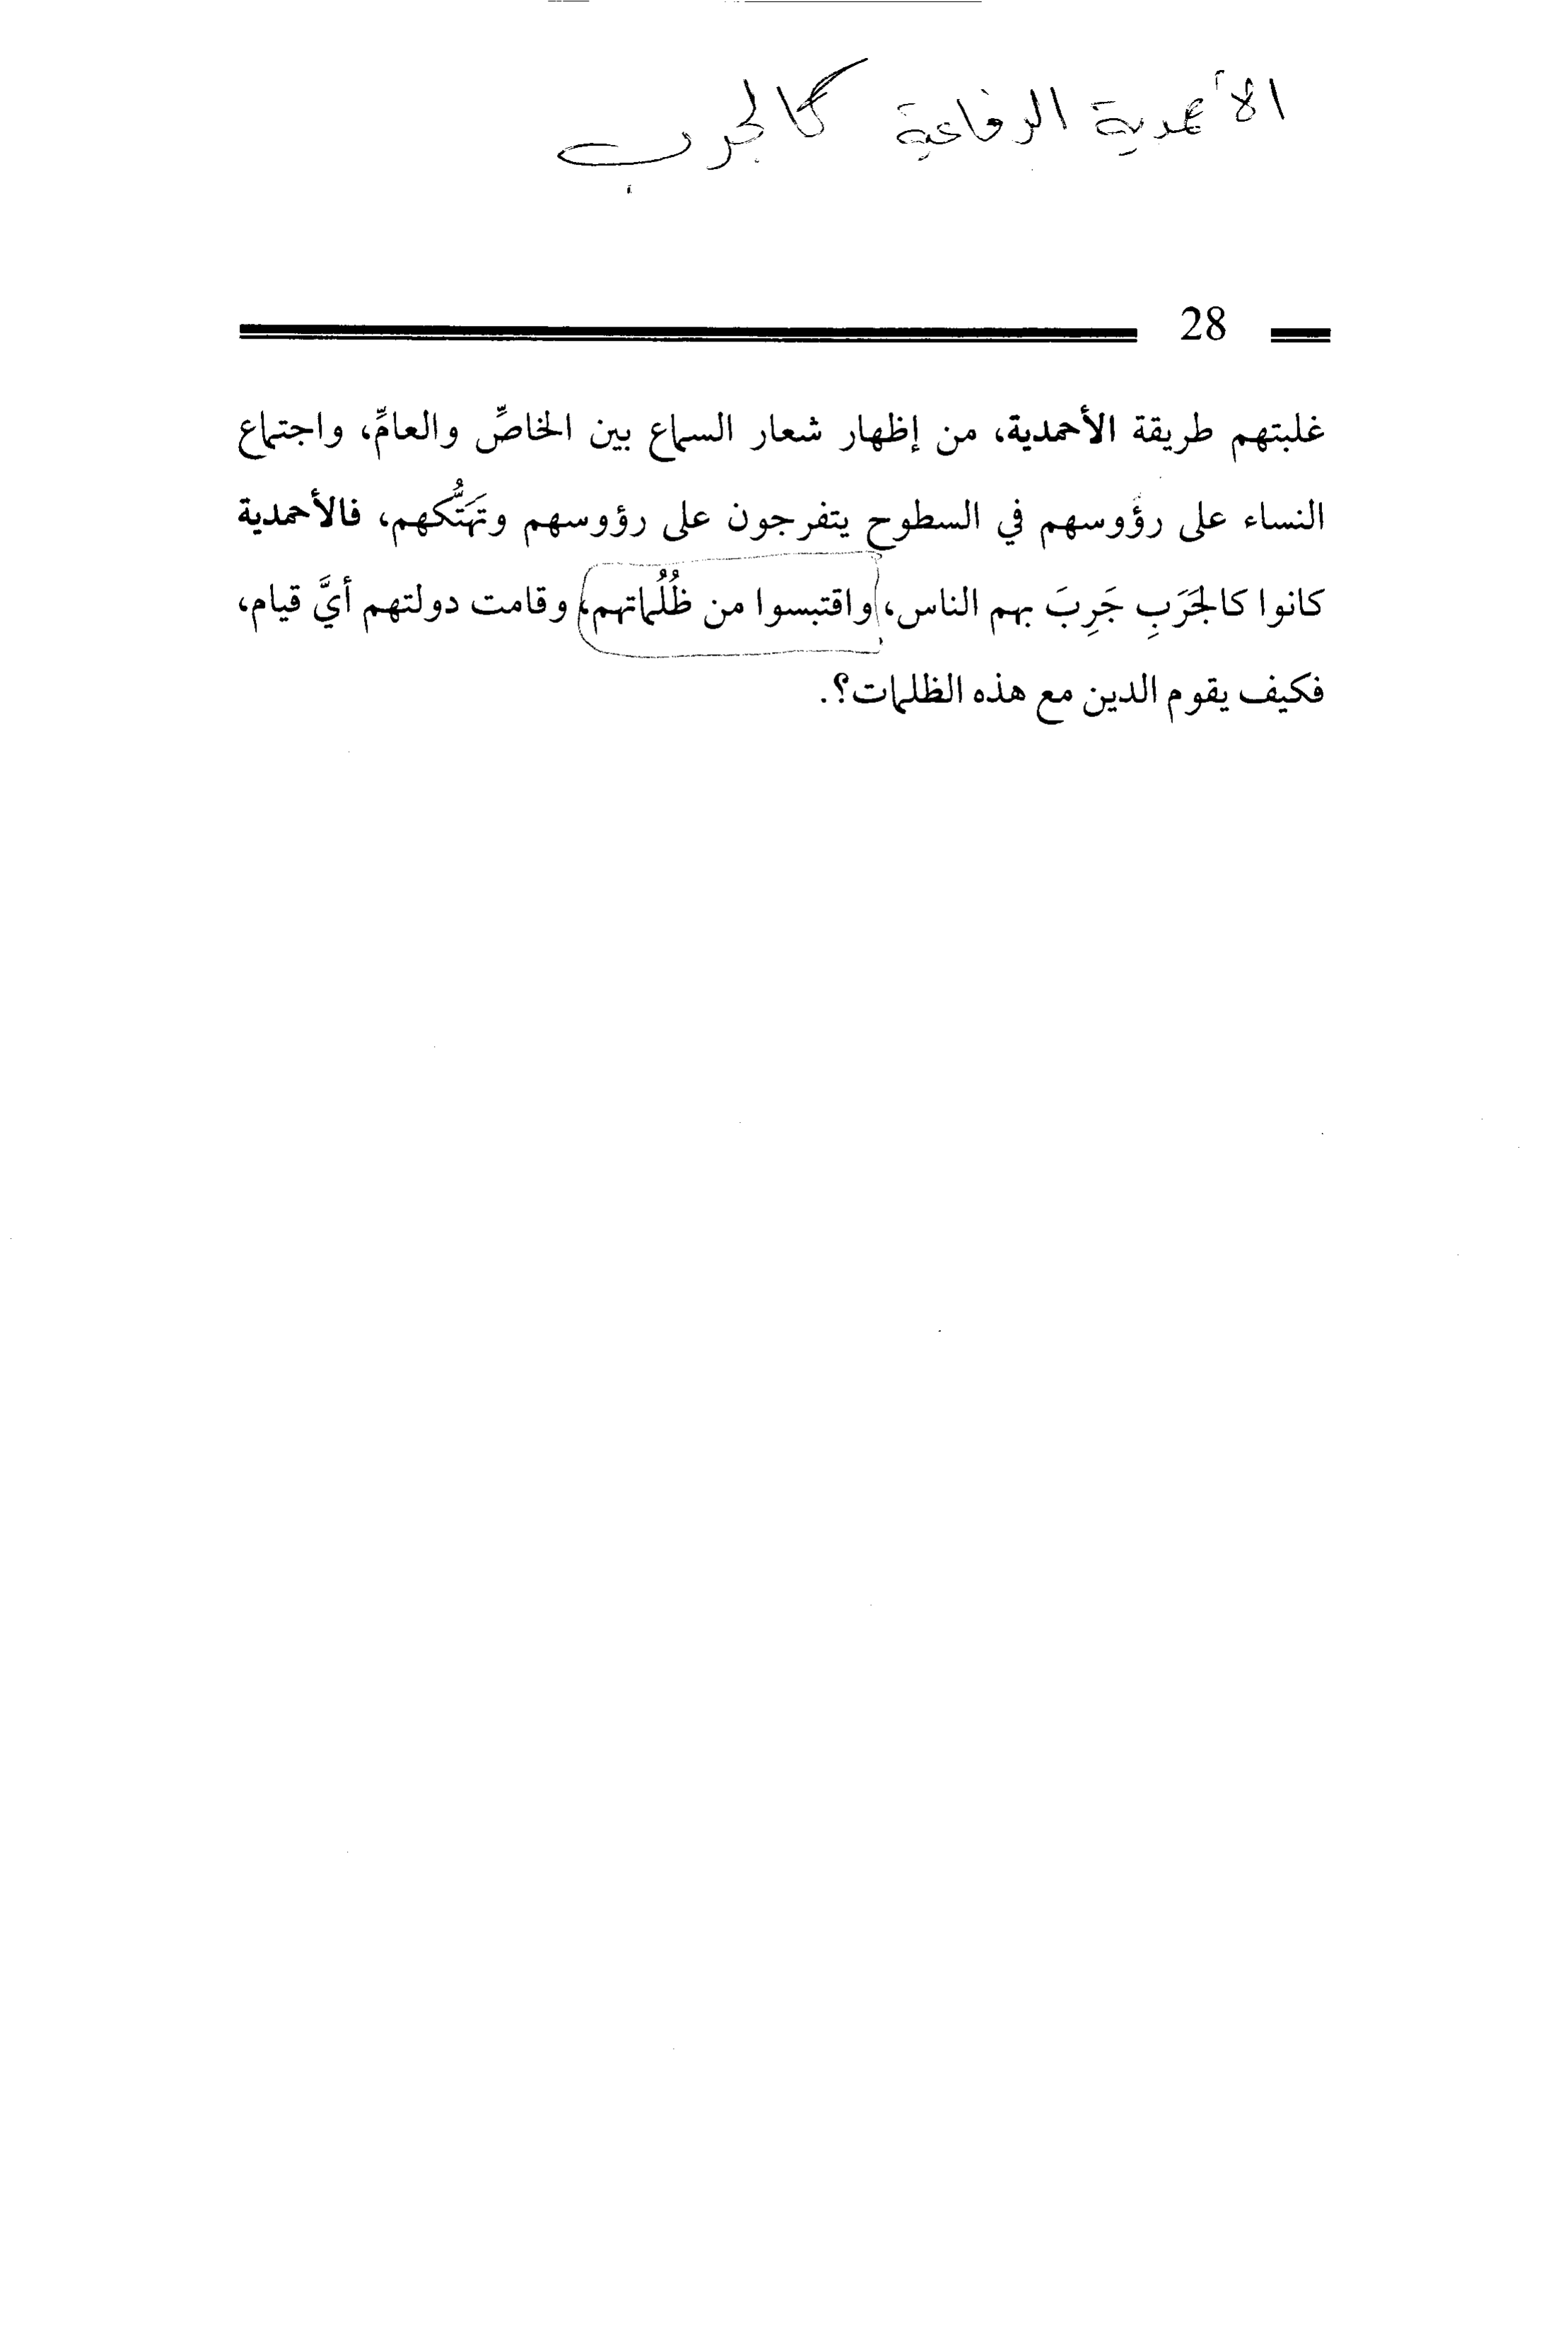 الأحمدية الرفاعية كالجرب
28
غلبتهم طريقة الأحمدية، من إظهار شعار السماع بين الخاصِّ والعامِّ، واجتماع
النساء على رؤوسهم في السطوح يتفرجون على رؤوسهم وتَهَتُّكهم، فالأحمدية
كانوا كالجَرَبِ جَرِبَ بهم الناس، واقتبسوا من ظُلُماتهم، وقامت دولتهم أيَّ قيام،
فكيف يقوم الدين مع هذه الظلمات؟.